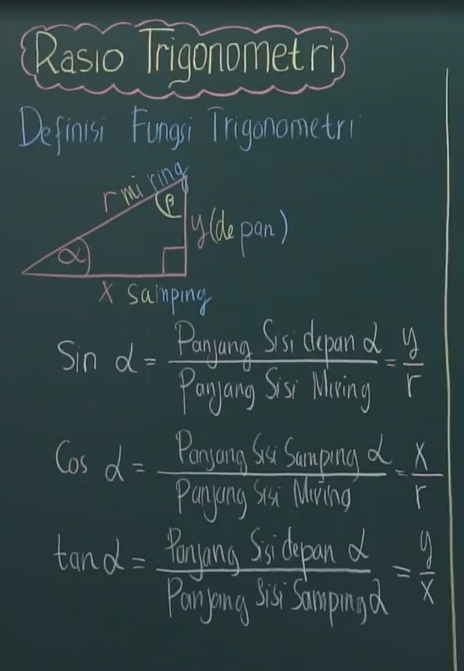 Rasio Trigonometri
Definisi Fungsi Trigonometri
r miring
β
y (depan)
α
x samping
Sin α = Panjang Sisi depan α / Panjang Sisi Miring = y / r
Cos α = Panjang Sisi Samping α / Panjang Sisi Miring = x / r
tan α = Panjang Sisi depan α / Panjang Sisi Samping α = y / x